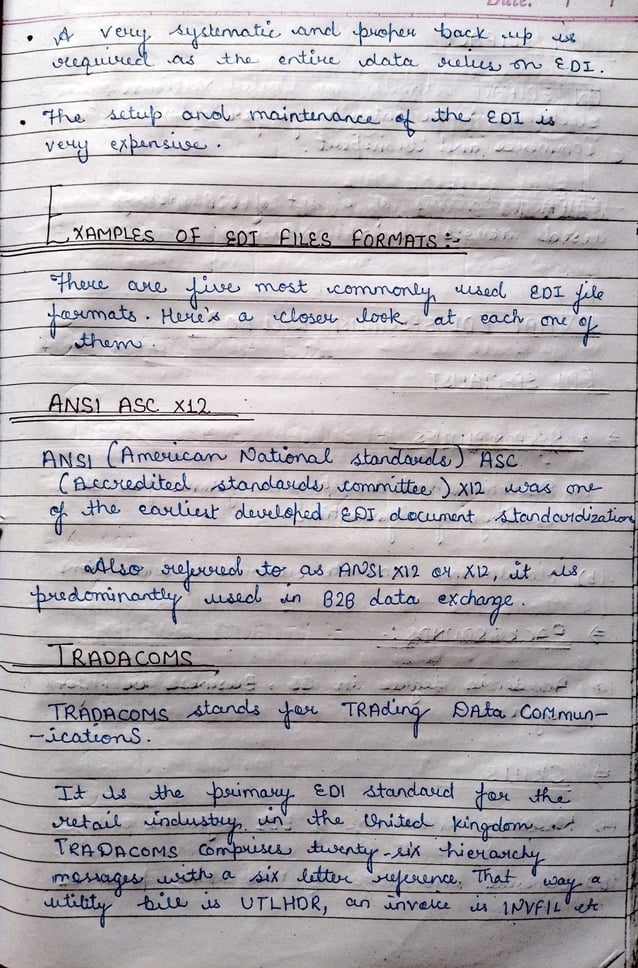 Date:
• A very systematic and proper back up is
required as the entire data relies on EDI.
• The setup and maintenance of the EDI is
very expensive.
EXAMPLES OF EDI FILES FORMATS:-
There are five most commonly used EDI file
formats. Here's a closer look at each one of
them.
ANSI ASC X12
ANSI (American National standards) ASC
(Accredited standards committee) X12 was one
of the earliest developed EDI document standardization
Also referred to as ANSI X12 or X12, it is
predominantly used in B2B data exchange.
TRADACOMS
TRADACOMS stands for TRAding DAta COMmun-
-icationS.
It is the primary EDI standard for the
retail industry in the United Kingdom.
TRADACOMS comprises twenty-six hierarchy
messages with a six letter reference. That way a
utility bill is UTLHDR, an invoice is INVFIL etc